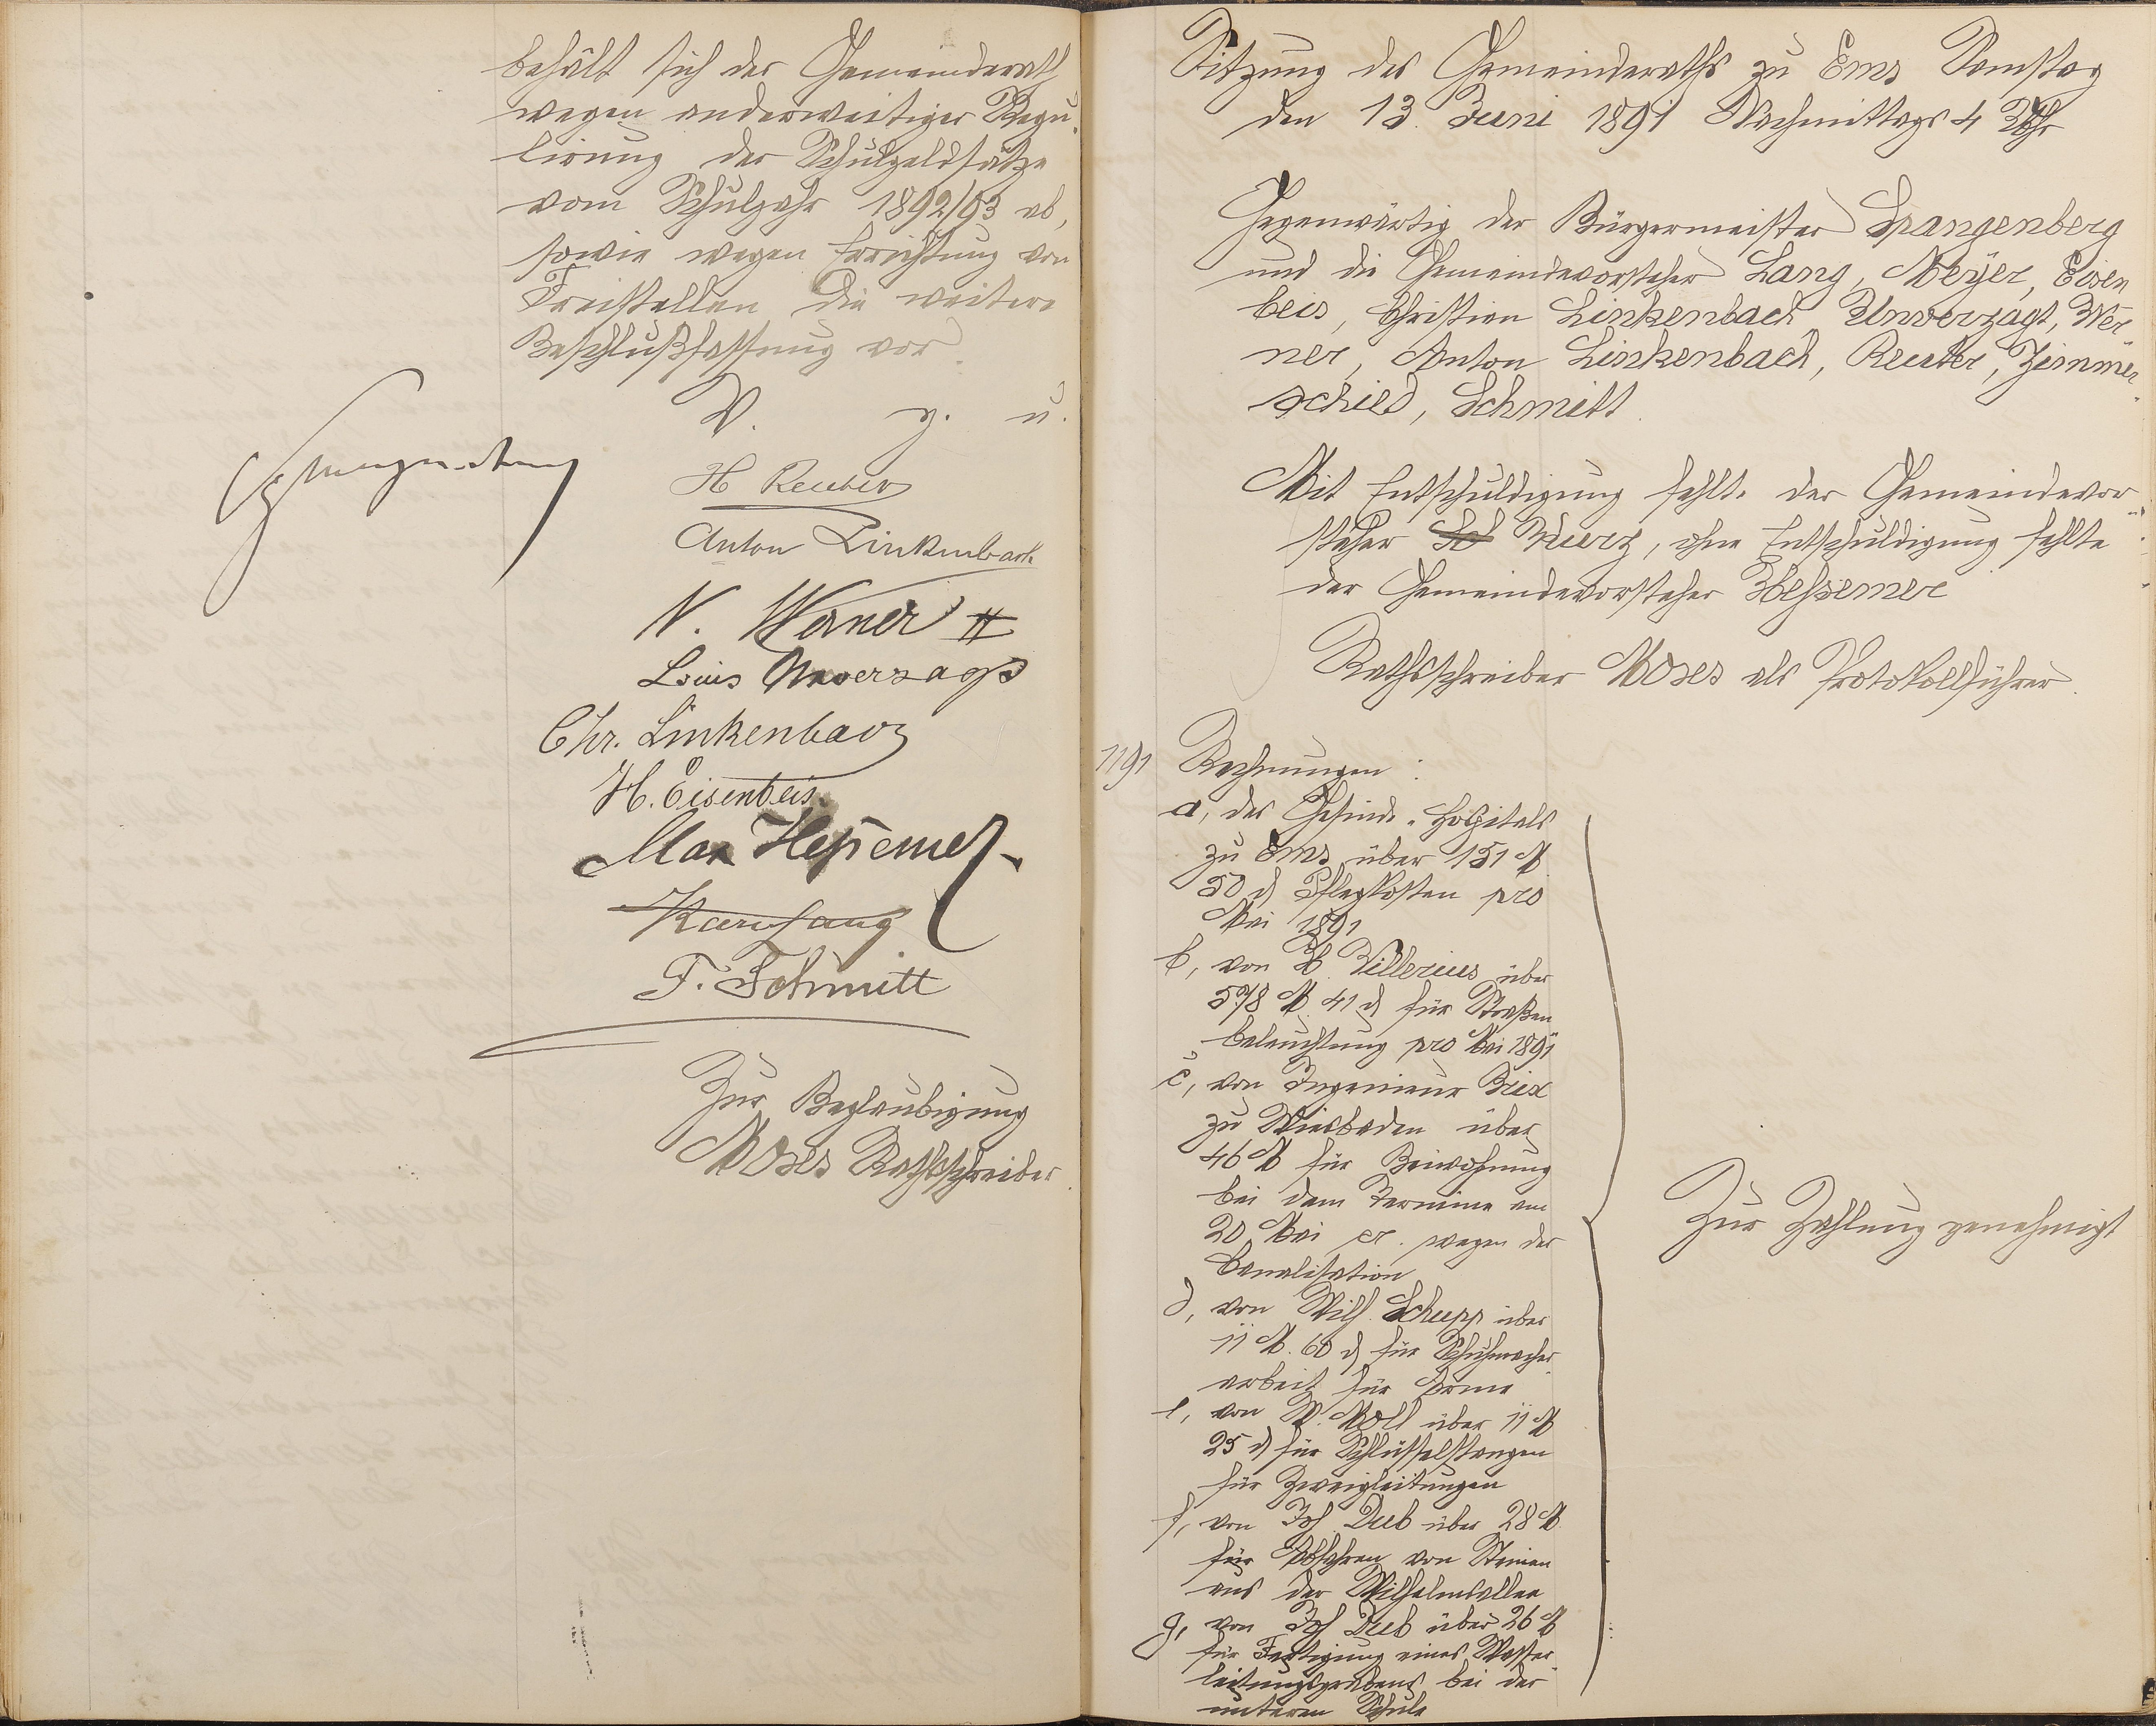 behält sich der Gemeinderath
wegen anderweitiger Regu-
lirung der Schulgeldsätze
vom Schuljahr 1892/93 ab,
sowie wegen Errichtung von
Freistellen die weitere
Beschlußfassung vor.
V. g. u.
Spangenberg
H Reuter
Anton Linkenbach
N. Werner II
Louis Unverzagt
Chr. Linkenbach
H. Eisenbeis.
Max Heßemer
Karl Lang
F. Schmitt
Zur Beglaubigung
Moses Rathsschreiber.
Sitzung des Gemeinderaths zu Ems Samstag
den 13. Juni 1891 Nachmittags 4 Uhr
Gegenwärtig der Bürgermeister Spangenberg
und die Gemeindevorsteher Lang, Meÿer, Eisen
beis, Christian Linkenbach Unverzagt, Wer
ner, Anton Linkenbach, Reuter, Zimmer
schied, Schmitt.
Mit Entschuldigung fehlte der Gemeindevor
steher Kurz, ohne Entschuldigung fehlte
der Gemeindevorsteher Heßemer
Rathsschreiber Moses als Protokollführer.
1191 Rechnungen:
a, des Gesinde-Hospitals
zu Ems über 151 M
50 d Pflegkosten pro
Mai 1891
b, von H. Villerius über
578 M. 41 d für Straßen
beleuchtung pro Mai 1891
c, von Ingenieur Brix
zu Wiesbaden über
46 M für Beiwohnung
bei dem Termine am
20 Mai cr. wegen der
Canalisation
d, von Wilh. Schupp über
11 M. 60 d für Schuhmacher
arbeit für Arme
e, von W. Moll über 11 M
25 d für Schlüsselstangen
für Zweigleitungen
f, von Joh Dub über 28 M.
für Abfahren von Steinen
aus der Wilhelmsallee
g, von Joh Dub über 26 M
für Fertigung eines Wasser
leitungsgrabens bei der
unteren Schule
Zur Zahlung genehmigt